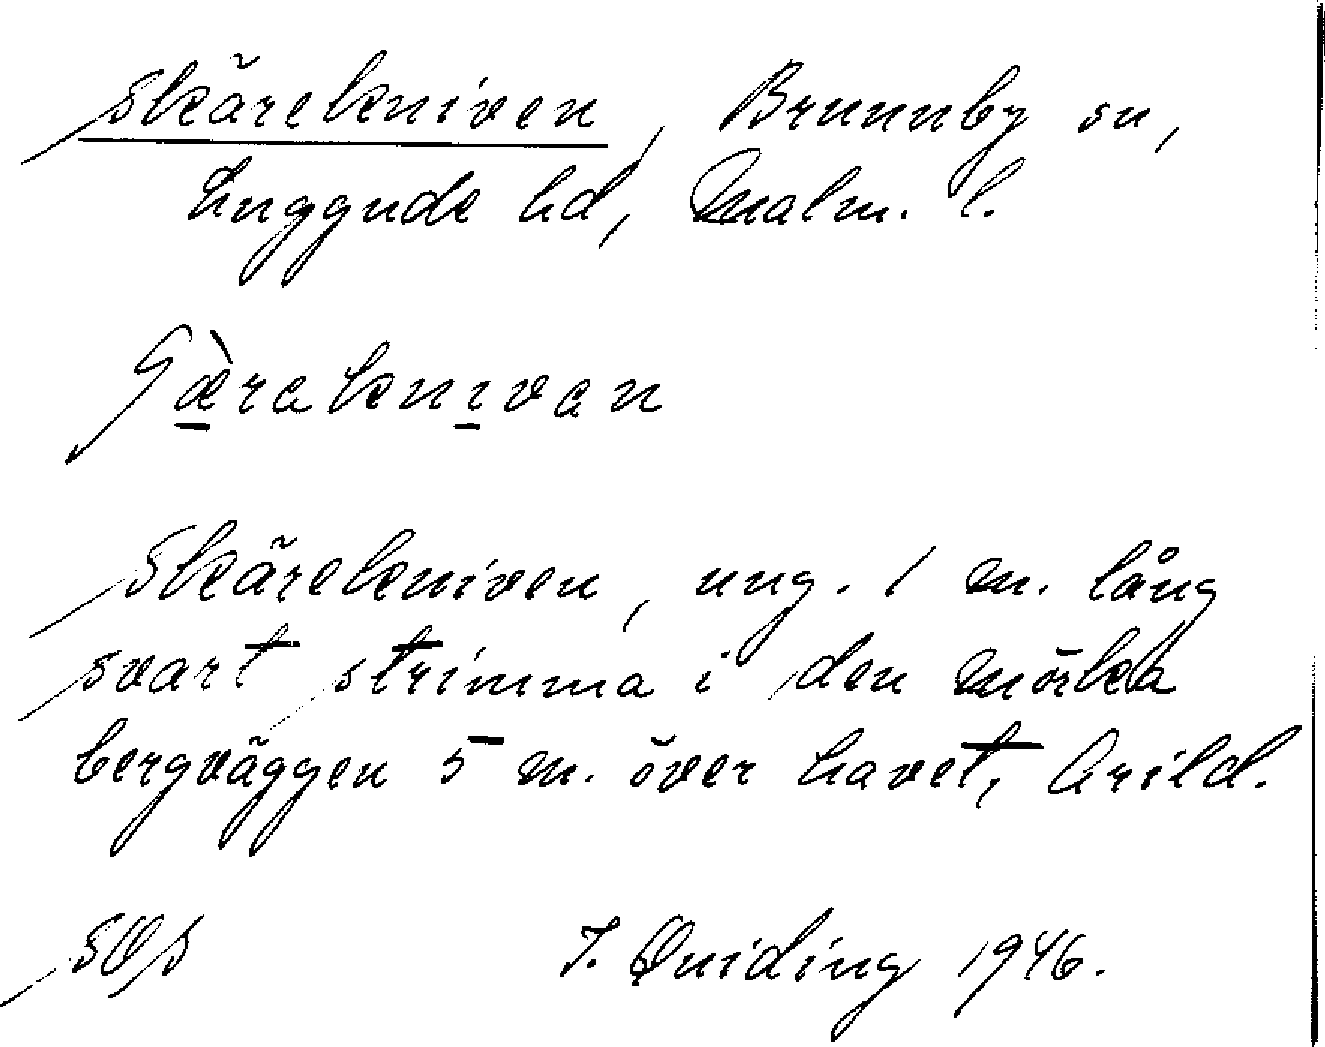 Skärekniven, Brunnby sn,
Luggude hd, Malm. l.
Skärekniven, ung. 1 m. lång
svart strimma i den mörka
bergväggen 5 m. över havet, Arild.
I. Quiding 1946.